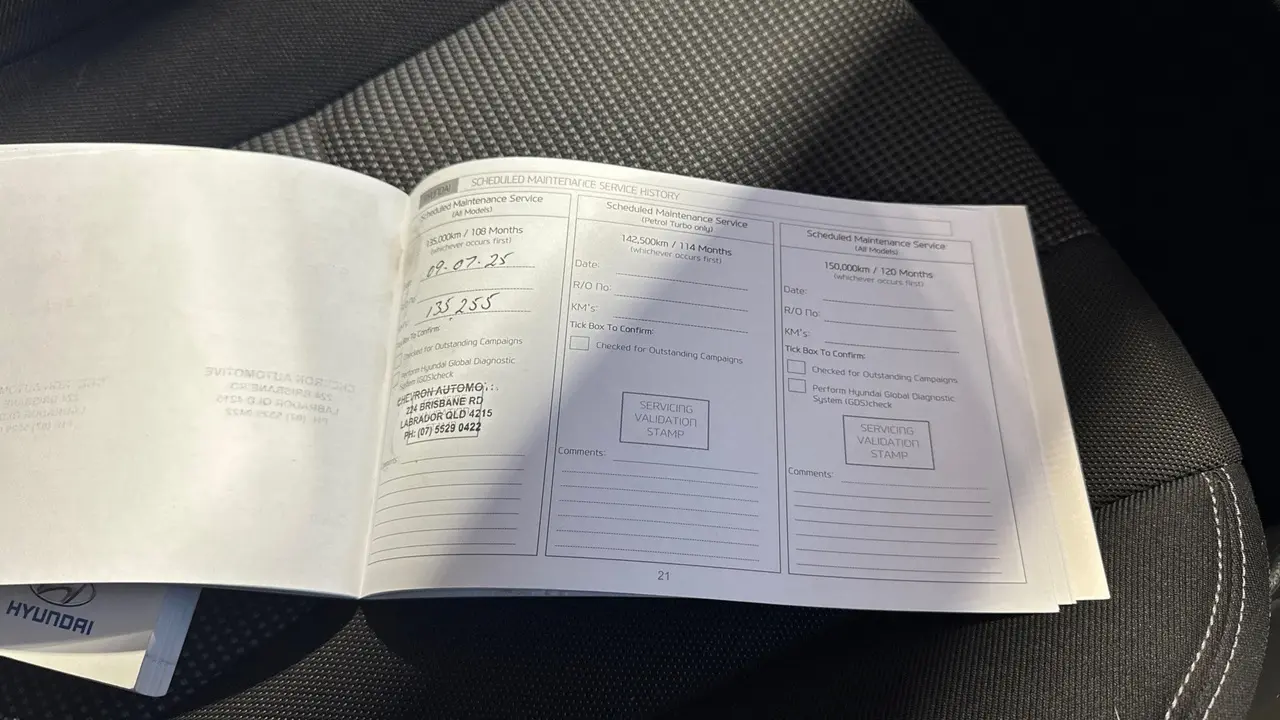 SCHEDULED MAINTENANCE SERVICE HISTORY
Scheduled Maintenance Service
(All Models)
135,000km / 108 Months
(whichever occurs first)
09-07-25
135,255
To Confirm:
Checked for Outstanding Campaigns
Perform Hyundai Global Diagnostic
System (GDS)check
CHEVRON AUTOMO
224 BRISBANE RD
LABRADOR QLD 4215
PH: (07) 5529 0422
Scheduled Maintenance Service
(Petrol Turbo only)
142,500km / 114 Months
(whichever occurs first)
Date:
R/O No:
KM's:
Tick Box To Confirm:
Checked for Outstanding Campaigns
SERVICING
VALIDATION
STAMP
Comments:
Scheduled Maintenance Service
(All Models)
150,000km / 120 Months
(whichever occurs first)
Date:
R/O No:
KM's:
Tick Box To Confirm:
Checked for Outstanding Campaigns
Perform Hyundai Global Diagnostic
System (GDS)check
SERVICING
VALIDATION
STAMP
Comments:
21
HYUNDAI